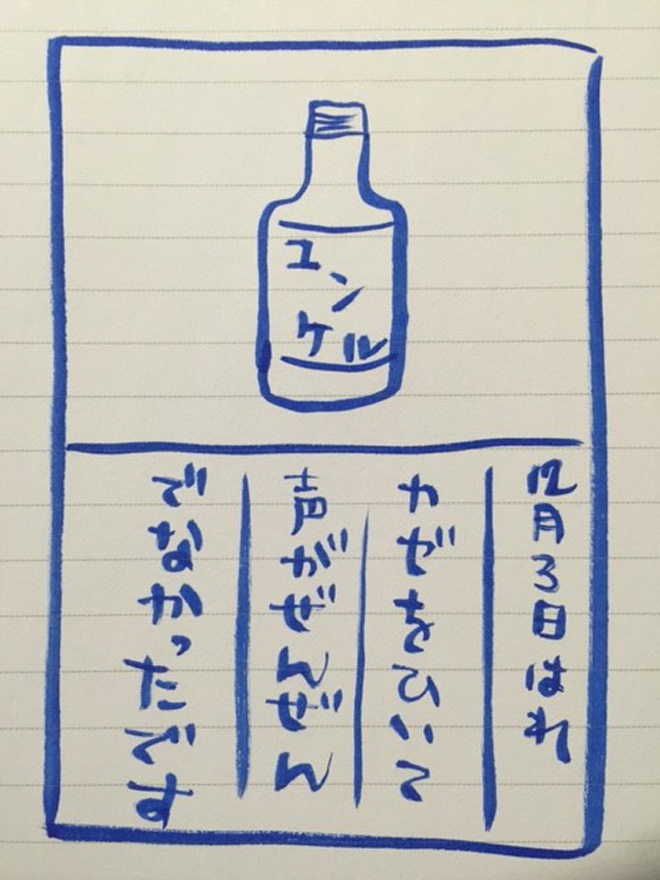 ユンケル
12月3日はれ
カゼをひいて
声がぜんぜん
でなかったです